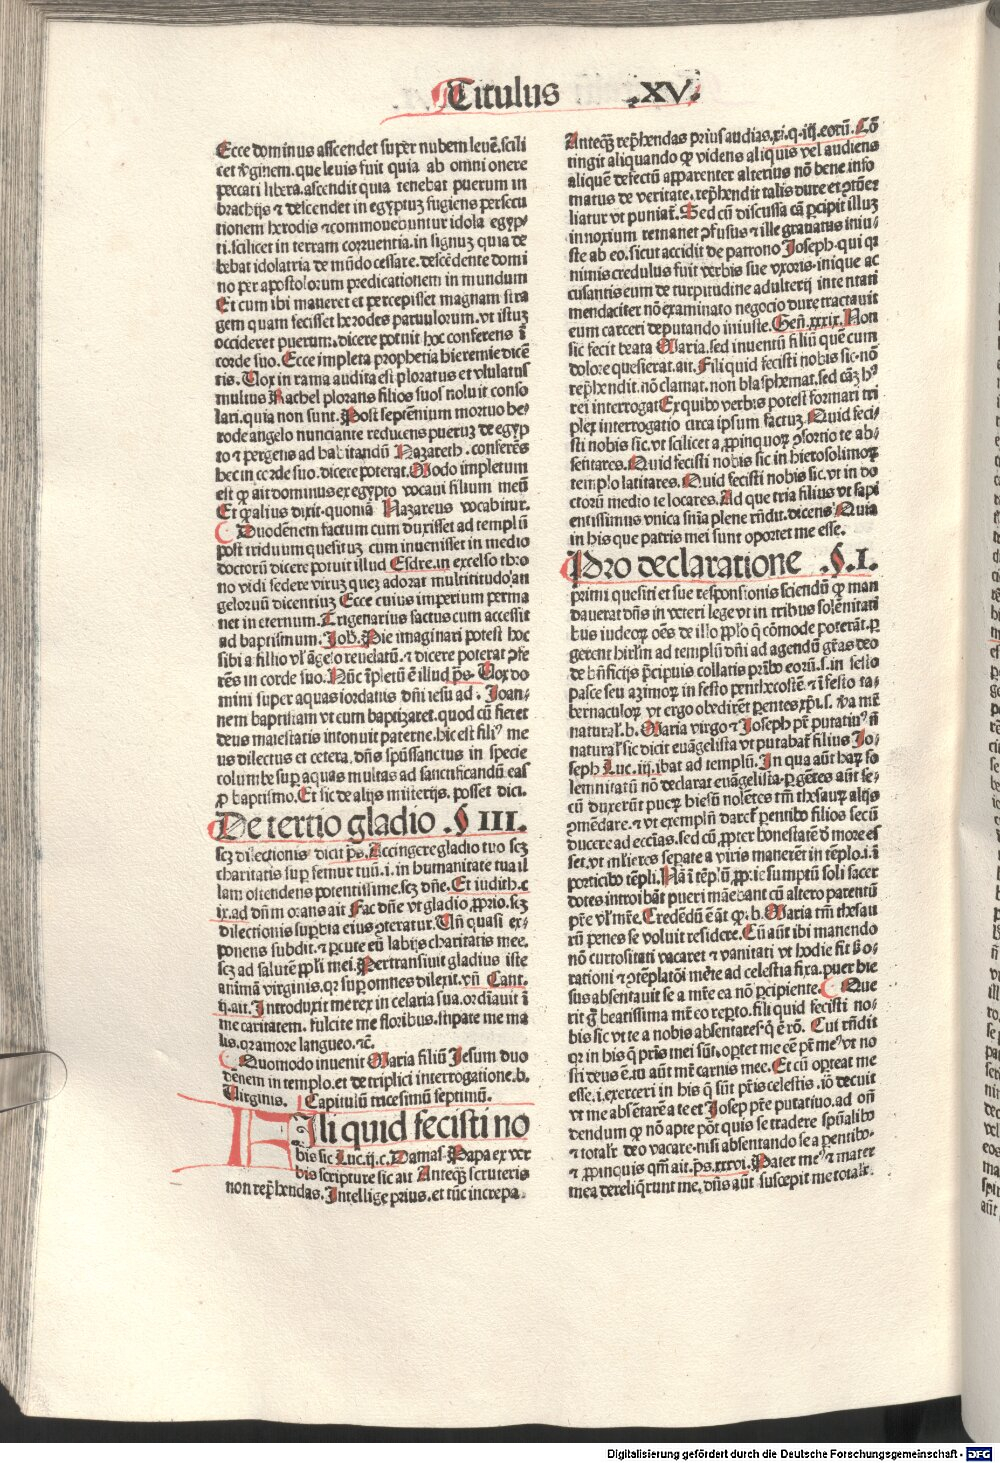 Titulus .XV.
Ecce dominus ascendet super nubem leuē.scili
cet v̄ginem.que leuis fuit quia ab omni onere
peccati libera.ascendit quia tenebat puerum in
brachijs ⁊ descendet in egyptuꝫ fugiens persecu
tionem herodis ⁊ commouebuntur idola egyp-
ti.scilicet in terram corruentia.in signuꝫ quia de
bebat idolatria de mūdo cessare.descēdente domi
no per apostolorum predicationem in mundum
Et cum ibi maneret et percepisset magnam stra
gem quam fecisset herodes paruulorum.vt istuꝫ
occideret puerum.dicere potuit hoc conferens ī
corde suo.Ecce impleta prophetia hieremie dicē
tis.Uox in rama audita est ploratus et vlulatus
multus Rachel plorans filios suos noluit conso
lari.quia non sunt.Post septēnium mortuo he-
rode angelo nunciante reducens pueruꝫ de egyp
to ⁊ pergens ad habitandū Nazareth.conferēs
hec in corde suo.dicere poterat.Modo impletum
est ꝙ ait dominus ex egypto vocaui filium meū
Et ꝙ alius dixit.quoniā Nazareus vocabitur.
Duodēnem factum cum duxisset ad templū
post triduum quesituꝫ cum inuenisset in medio
doctorū dicere potuit illud Esdre.in excelso thro
no vidi sedere viruꝫ queꝫ adorat multitudo an
geloruꝫ dicentiuꝫ Ecce cuius imperium perma
net in eternum.Trigenarius factus cum accessit
ad baptismum.Joh̄.Pie imaginari potest hoc
sibi a filio vl' āgelo reuelatū.⁊ dicere poterat ꝯfe
rēs in corde suo.Nūc īpletū ē illud ps̄.Uox do
mini super aquas iordanis dn̄i iesu ad.Joan-
nem baptistam vt eum baptizaret.quod cū fieret
deus maiestatis intonuit paterne.hic est fili⁹ me
us dilectus et cetera.dn̄s sp̄ussanctus in specie
columbe suꝑ aquas multas ad sanctificandū eas
ꝓ baptismo.Et sic de alijs misterijs.posset dici.
De tertio gladio .§ III.
scꝫ dilectionis dicit ps̄.Accingere gladio tuo scꝫ
charitatis suꝑ femur tuū.i.in humanitate tua il
lam ostendens potentissime.scꝫ dn̄e.Et iudith.c
ix.ad dn̄m orans ait Fac dn̄e vt gladio ꝓprio.scꝫ
dilectionis suꝑbia eius ꝯteratur.Un̄ quasi ex-
ponens subdit.⁊ ꝑcute eū labijs charitatis mee.
scꝫ ad salutē ppl̄i mei.Pertransiuit gladius iste
animā virginis.qꝛ suꝑ omnes dilexit.vn̄ Cant.
ij.ait.Introduxit me rex in celaria sua.ordiauit ī
me caritatem.fulcite me floribus.stipate me ma
lis.qꝛ amore langueo.⁊c̄.
Quomodo inuenit Maria filiū Jesum duo
dēnem in templo.et de triplici interrogatione.b.
Uirginis. Capitulū tricesimum septimū.
Fili quid fecisti no
bis sic Luc.ij.c.Damas.Papa ex ver
bis scripture sic ait Anteqꝫ scruteris
non rep̄hendas.Intellige prius.et tūc increpa.
Anteqꝫ rep̄hendas prius audias.xi.q.iij.eorū.Cō
tingit aliquando ꝙ videns aliquis vel audiens
aliquē defectū apparenter alterius nō bene.info
matus de veritate.rep̄hendit talis dure et ꝯtūē
liatur vt puniat̄.Sed cū discussa cā ꝑcipit illuꝫ
innoxium remanet ꝯfusus ⁊ ille grauatus iniu-
ste ab eo.sicut accidit de patrono Joseph.qui qꝛ
nimis credulus fuit verbis sue vxoris.inique ac
cusantis eum de turpitudine adulterij intentati
mendaciter nō examinato negocio dure tractauit
eum carceri deputando iniuste.Gen̄.xxxix.Non
sic fecit beata Maria.sed inuentū filiū quē cum
dolore quesierat.ait.Fili quid fecisti nobis sic.nō
rep̄hendit.nō clamat.non blasphemat.sed cāꝫ h⁹
rei interrogat Ex quibꝰ verbis potest formari tri
plex interrogatio circa ipsum factuꝫ.Quid feci-
sti nobis sic.vt scilicet a ꝓpinquoꝝ ꝯsortio te ab-
sentares.Quid fecisti nobis sic in hierosolimoꝝ
templo latitares.Quid fecisti nobis sic.vt in do
ctorū medio te locares.Ad que tria filius vt sapi
entissimus vnica sn̄ia plene rn̄dit.dicens Quia
in his que patris mei sunt oportet me esse.
Pro declaratione .§.I.
primi quesiti et sue responsionis sciendū ꝙ man
dauerat dn̄s in veteri lege vt in tribus solēnitati
bus iudeoꝝ oēs de illo ppl̄o q̄ cōmode poterāt.ꝑ
gerent hirl̄m ad templū dn̄i ad agendū gr̄as deo
de bn̄ficijs p̄cipuis collatis prībꝰ eorū.s.in festo
pasce seu azimoꝝ in festo penthecostē ⁊ ī festo ta-
bernaculoꝝ vt ergo obediret ꝑentes xp̄i.s. v̄a mr̄
natural'.b.Maria virgo ⁊ Joseph pr̄ putatiu⁹ n̄
natural' sic dicit euāgelista vt putabat̄ filius Jo-
seph Luc.iij.ibat ad templū.In qua aūt haꝝ so
lemnitatū nō declarat euāgelista.ꝑgētes aūt se-
cū duxerūt pueꝝ hiesū nolētes tm̄ thesauꝝ alijs
ꝯmēdare.⁊ vt exemplū darēt ꝑentibꝰ filios secū
ducere ad eccl̄ias.sed cū ꝓpter honestatē ō more es
set.vt mulieres seꝑate a viris manerēt in tēplo.i.ī
porticibꝰ tēpli.Nā ī tēplū ꝓprie sumptū soli sacer
dotes introibāt pueri māebant cū altero parentū
pr̄e vl' mr̄e.Credēdū ē āt ꝙ.b.Maria tm̄ thesau
rū penes se voluit residere.Cū aūt ibi manendo
nō curiositati vacaret ⁊ vanitati vt hodie fit s̄ o-
rationi ⁊ ꝯtēplatōi mēte ad celestia fixa.puer hie
sus absentauit se a mr̄e ea nō ꝑcipiente.Que
rit g̊ beatissima mr̄ eo reꝑto.fili quid fecisti no-
bis sic vt te a nobis absentares.q̄ ē rō. Cui rn̄dit
qꝛ in his q̄ pr̄is mei sūt.oꝑtet me eē pr̄ me⁹ vt no
sti deus ē.tu aūt mr̄ carnis mee.Et cū oꝑteat me
esse.i.exerceri in his q̄ sūt pr̄is celestis.iō decuit
vt me absētarē a te et Josep pr̄e putatiuo.ad on̄
dendum ꝙ nō apte pōt quis se tradere sp̄ualibꝰ
⁊ totalr̄ deo vacare.nisi absentando se a ꝑentibꝰ
⁊ ꝓpinquis qm̄ ait.ps̄.xxvi.Pater me⁹ ⁊ mater
mea dereliq̄runt me.dn̄s aūt suscepit me totalr̄.
Digitalisierung gefördert durch die Deutsche Forschungsgemeinschaft - DFG